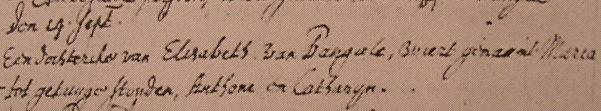 Den 19 Sept.
Een dochterken van Elisabeth van Bangule, wiert genaemt Maria
tot getuyge stonden, Anthoni en Catharyn.